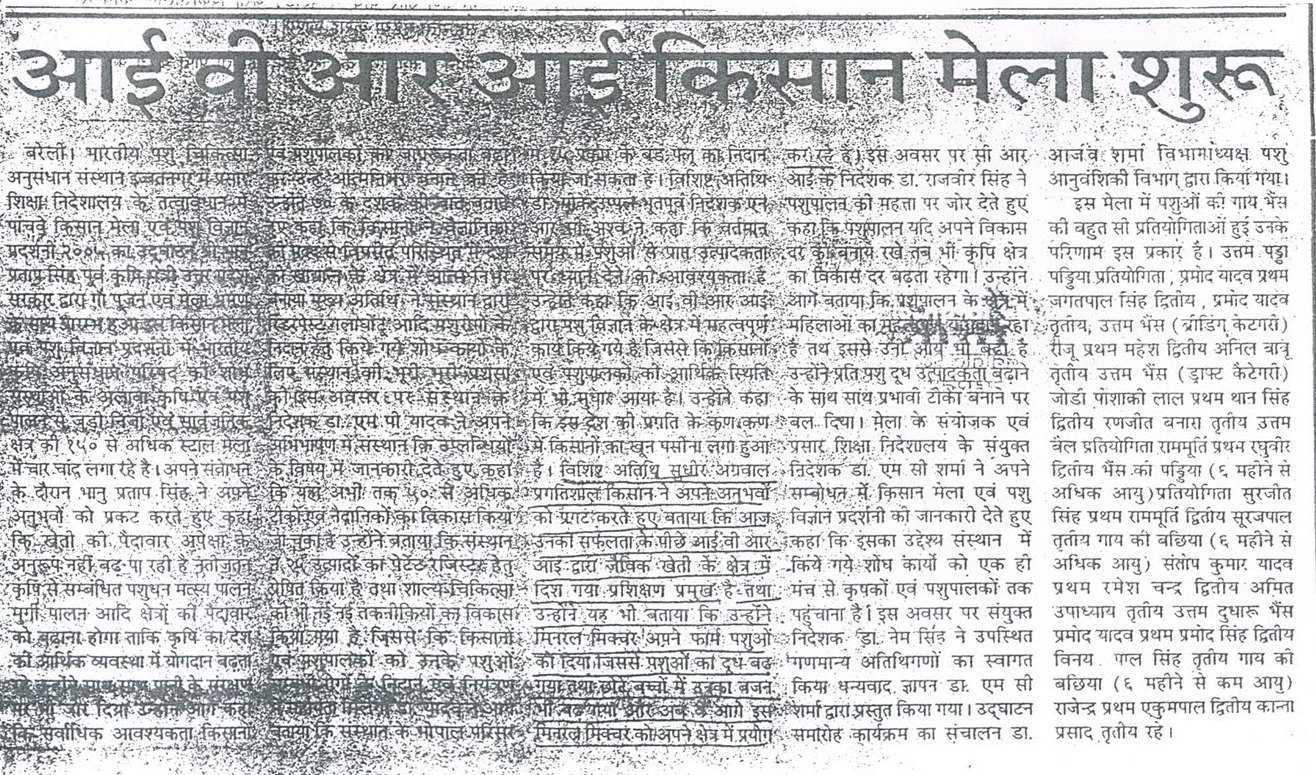 आई वी आर आई किसान मेला शुरू
बरेली। भारतीय पशु चिकित्सा
अनुसंधान संस्थान इज्जतनगर में प्रसार
शिक्षा निदेशालय के तत्वावधान में
पांचवे किसान मेला एवं पशु विज्ञान
प्रदर्शनी २००५ का उद्घाटन श्री भानु
प्रताप सिंह पूर्व कृषि मंत्री उत्तर प्रदेश
सरकार द्वारा गौ पूजन एवं मेला भ्रमण
के साथ प्रारम्भ हुआ इस किसान मेला
एवं पशु विज्ञान प्रदर्शनी में भारतीय
कृषि अनुसंधान परिषद की शोध
संस्थाओं के अलावा कृषि एवं पशु
पालन से जुड़ी निजी एवं सार्वजनिक
क्षेत्र की १५० से अधिक स्टाल मेला
में चार चांद लगा रहे है। अपने संबोधन
के दौरान भानु प्रताप सिंह ने अपने
अनुभवों को प्रकट करते हुए कहा
कि खेती की पैदावार अपेक्षा के
अनुरूप नहीं बढ पा रही है
कृषि से सम्बंधित पशुधन मत्स्य पालन
मुर्गी पालन आदि क्षेत्रों की पैदावार
को बढ़ाना होगा ताकि कृषि का देश
की आर्थिक व्यवस्था में योगदान बढता
रहे उन्होंने साथ साथ पानी के संरक्षण
पर भी जोर दिया उन्होंने आगे कहा
कि सर्वाधिक आवश्यकता किसानों
एवं पशुपालकों की जागरूकता बढ़ा
कर उन्हें आत्मनिर्भर बनाने की है
उन्होंने ७० के दशक की बात बताते
हुए कहा कि किसानों ने वैज्ञानिकों
की मदद से विपरीत परिस्थिति में देश
को खाद्यान के क्षेत्र में आत्म निर्भर
बनाया मुख्य अतिथि ने संस्थान द्वारा
रिंडरपेस्ट गलाघोंटू आदि पशुरोगों के
निदान हेतु किये गये शोध कार्यों के
लिए संस्थान की भूरी भूरी प्रशंसा
की इस अवसर पर संस्थान के
निदेशक डा. एम पी यादव ने अपने
अभिभाषण में संस्थान कि उपलब्धियों
के विषय में जानकारी देते हुए कहा
कि यहां अभी तक ५० से अधिक
टीकों एवं नैदानिकों का विकास किया
जा चुका है उन्होंने बताया कि संस्थान
ने उत्पादों का पेटेंट रजिस्टर हेतु
प्रेषित किया है तथा शल्य चिकित्सा
की भी नई नई तकनीकियों का विकास
किया गया है जिससे कि किसानों
एवं पशुपालकों को उनके पशुओं
के निदान एवं नियंत्रण
में सहायता मिलेगी डा. यादव ने आगे
बताया कि संस्थान के भोपाल परिसर
में प्रकार के बर्ड फ्लू का निदान
किया जा सकता है। विशिष्ट अतिथि
डा. भूतपूर्व निदेशक एन
ने कहा कि वर्तमान
में पशुओं से प्राप्त उत्पादकता
पर ध्यान देने की आवश्यकता है
उन्होंने कहा कि आई वी आर आई
द्वारा पशु विज्ञान के क्षेत्र में महत्वपूर्ण
कार्य किये गये है जिससे कि किसानों
एवं पशुपालकों की आर्थिक स्थिति
में भी सुधार आया है। उन्होंने कहा
कि इस देश की प्रगति के कण कण
में किसानों का खून पसीना लगा हुआ
है। विशिष्ट अतिथि सुधीर अग्रवाल
प्रगतिशील किसान ने अपने अनुभवों
को प्रगट करते हुए बताया कि आज
उनकी सफलता के पीछे आई वी आर
आई द्वारा जैविक खेती के क्षेत्र में
दिया गया प्रशिक्षण प्रमुख है तथा
उन्होंने यह भी बताया कि उन्होंने
मिनरल मिक्चर अपने फार्म पशुओं
को दिया जिससे पशुओं का दूध बढ
गया तथा छोटे बच्चों में उनका वजन
भी बढ गया और अब वे आगे इस
मिनरल मिक्चर को अपने क्षेत्र में प्रयोग
कर रहे है। इस अवसर पर सी आर
आई के निदेशक डा. राजवीर सिंह ने
पशुपालन की महत्ता पर जोर देते हुए
कहा कि पशुपालन यदि अपने विकास
दर को बनाये रखे तब भी कृषि क्षेत्र
का विकास दर बढता रहेगा। उन्होंने
आगे बताया कि पशुपालन के क्षेत्र में
महिलाओं का महत्वपूर्ण योगदान रहा
है तथ इससे उनी आय भी बढी है
उन्होंने प्रति पशु दूध उत्पादकता बढ़ाने
के साथ साथ प्रभावी टीका बनाने पर
बल दिया। मेला के संयोजक एवं
प्रसार शिक्षा निदेशालय के संयुक्त
निदेशक डा. एम सी शर्मा ने अपने
सम्बोधन में किसान मेला एवं पशु
विज्ञान प्रदर्शनी की जानकारी देते हुए
कहा कि इसका उद्देश्य संस्थान में
किये गये शोध कार्यों को एक ही
मंच से कृषकों एवं पशुपालकों तक
पहुंचाना है। इस अवसर पर संयुक्त
निदेशक डा. नेम सिंह ने उपस्थित
गणमान्य अतिथिगणों का स्वागत
किया धन्यवाद ज्ञापन डा. एम सी
शर्मा द्वारा प्रस्तुत किया गया। उद्घाटन
समारोह कार्यक्रम का संचालन डा.
आर्जव शर्मा विभागाध्यक्ष पशु
आनुवंशिकी विभाग द्वारा किया गया।
इस मेला में पशुओं की गाय भैंस
की बहुत सी प्रतियोगिताओं हुई उनके
परिणाम इस प्रकार है। उत्तम पड्डा
पड्डिया प्रतियोगिता, प्रमोद यादव प्रथम
जगतपाल सिंह द्वितीय, प्रमोद यादव
तृतीय, उत्तम भैंस (ब्रीडिंग केटगरी)
राजू प्रथम महेश द्वितीय अनिल बाबू
तृतीय उत्तम भैंस (ड्राफ्ट कैटेगरी)
जोडी पोशाकी लाल प्रथम थान सिंह
द्वितीय रणजीत बनारा तृतीय उत्तम
बैल प्रतियोगिता राममूर्ति प्रथम रघुवीर
द्वितीय भैंस की पड्डिया (६ महीने से
अधिक आयु) प्रतियोगिता सुरजीत
सिंह प्रथम राममूर्ति द्वितीय सूरजपाल
तृतीय गाय की बछिया (६ महीने से
अधिक आयु) संतोष कुमार यादव
प्रथम रमेश चन्द्र द्वितीय अमित
उपाध्याय तृतीय उत्तम दुधारू भैंस
प्रमोद यादव प्रथम प्रमोद सिंह द्वितीय
विनय पाल सिंह तृतीय गाय की
बछिया (६ महीने से कम आयु)
राजेन्द्र प्रथम एकुमपाल द्वितीय कान्ता
प्रसाद तृतीय रहे।